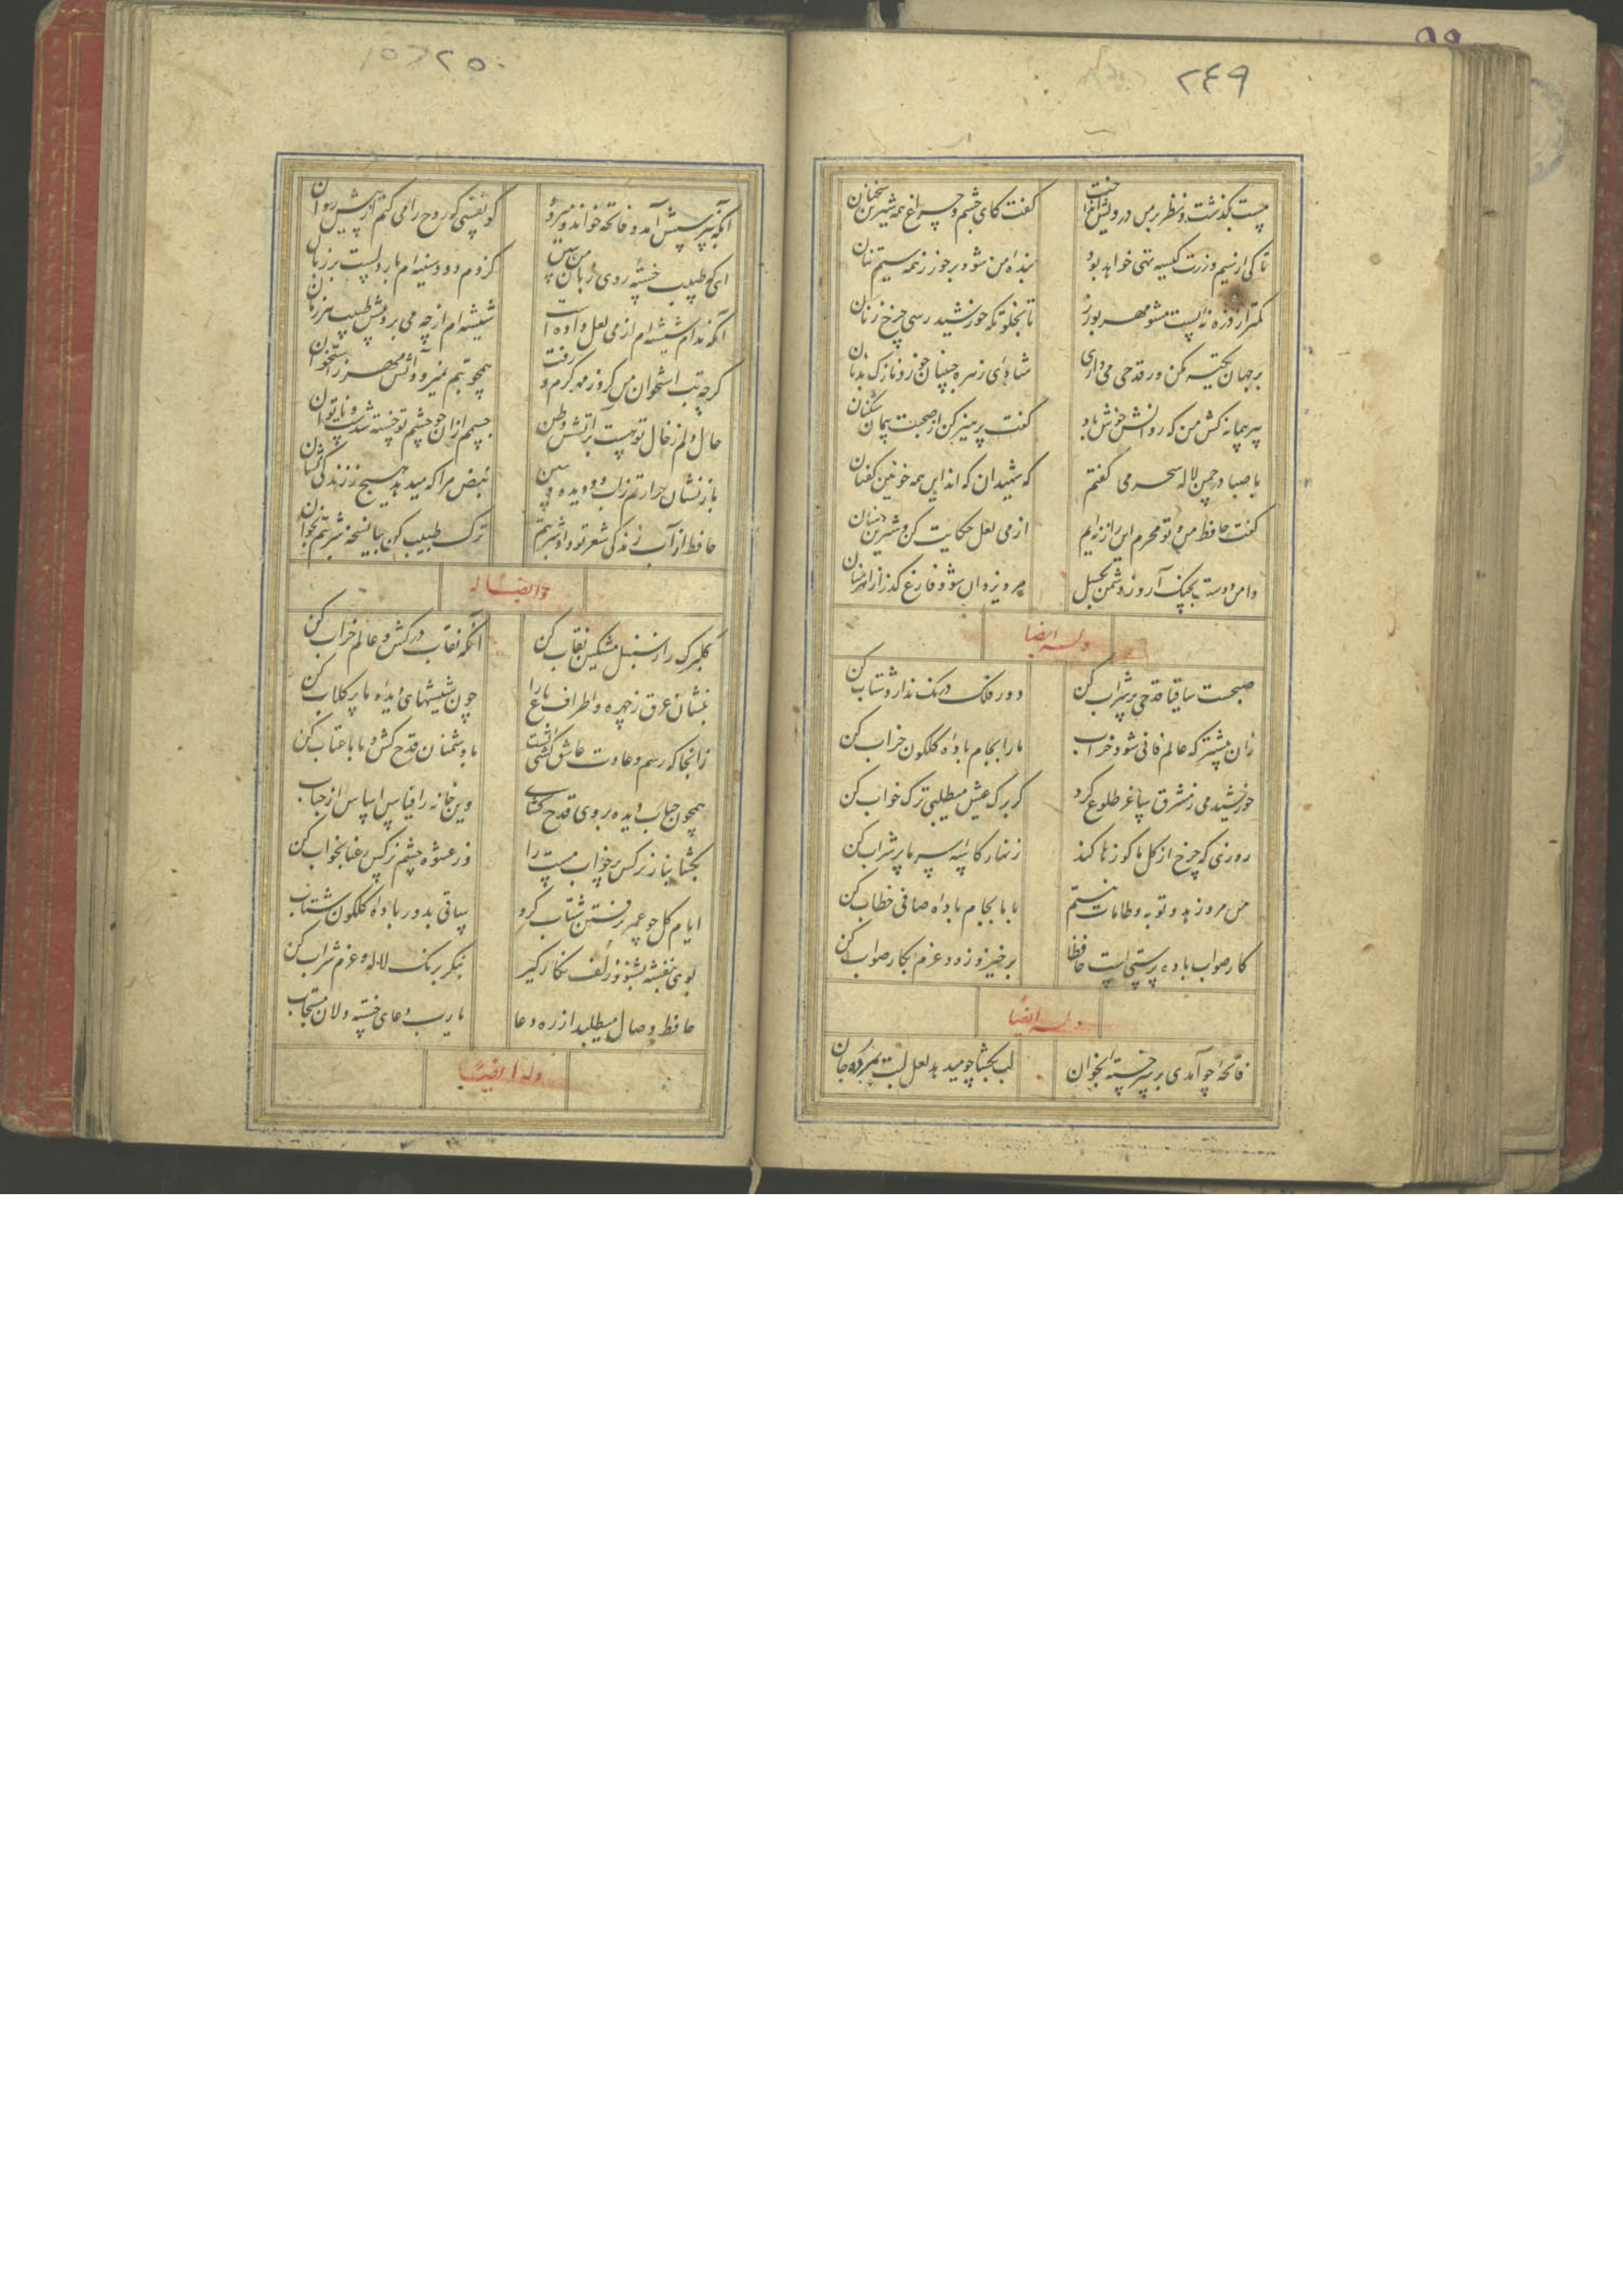 ۲۴۹
مست بگذشت و نظر بر من درویش انداخت
گفت کای چشم و چراغ همه شیرین سخنان
تا کی از سیم و زرت کیسه تهی خواهد بود
بنده من شو و برخور ز همه سیم تنان
کمتر از ذره نه پست مشو مهر بورز
تا بخلوتکه خورشید رسی چرخ زنان
بر جهان تکیه مکن ور قدحی می داری
شادی زهره جبینان خور و نازک بدنان
پیر پیمانه کش من که روانش خوش باد
گفت پرهیز کن از صحبت پیمان شکنان
با صبا در چمن لاله سحر می گفتم
که شهیدان که اند این همه خونین کفنان
گفت حافظ من و تو محرم این راز نه ایم
از می لعل حکایت کن و شیرین دهنان
دامن دوست بچنک آر و ز دشمن بکسل
مرد یزدان شو و فارغ گذر از اهرمنان
وله ایضا
صبحست ساقیا قدحی پر شراب کن
دور فلک درنک ندارد شتاب کن
زان پیشتر که عالم فانی شود خراب
ما را بجام باده کلکون خراب کن
خورشید می ز مشرق ساغر طلوع کرد
کر برک عیش میطلبی ترک خواب کن
روزی که چرخ از کل ما کوزها کند
زنهار کاسه سر ما پر شراب کن
من مرد زهد و توبه و طامات نیستم
با ما بجام باده صافی خطاب کن
کار صواب باده پرستی است حافظا
برخیز و زود عزم بکار صواب کن
وله ایضا
فاتحه چو آمدی بر سر خسته بخوان
لب بکشا چو میدهد لعل لبت بمرده جان
۲۵۰
آنکه بپرسش آمد و فاتحه خواند و میرود
کو نفسی که روح را می کنم از پیش روان
ای که طبیب خسته روی زبان من ببین
کز دم و دود سینه ام بار دلست بر زبان
آنکه مدام شیشه ام از می لعل داده است
شیشه ام از چه می برد پیش طبیب هر زمان
کرچه تب استخوان من کرد ز مهر کرم و رفت
همچو تبم نمیرود آتش مهر ز استخوان
حال دلم ز خال تو هست بر آتش وطن
جسمم از آن دو چشم تو خسته شدست و ناتوان
باز نشان حرارتم ز آب دو دیده و ببین
نبض مرا که میدهد هیچ ز زندگی نشان
حافظ از آب زندگی شعر تو داد شربتم
ترک طبیب کن بیا نسخه شربتم بخوان
و ایضا له
کلبرک را ز سنبل مشکین نقاب کن
آنکه نقاب درکش و عالم خراب کن
بفشان عرق ز چهره و اطراف باغ را
چون شیشهای دیده ما پر کلاب کن
زانجا که رسم و عادت عاشق کشی است
با دشمنان قدح کش و با ما عتاب کن
همچون حباب دیده بروی قدح کشای
وین خانه را قیاس اساس از حباب
بکشا بناز نرکس پر خواب مست را
وز عشوه چشم نرکس رعنا بخواب کن
ایام کل چو عمر برفتن شتاب کرد
ساقی بدور باده کلکون شتاب
بوی بنفشه بشنو و زلف نکار کیر
بنکر برنک لاله و عزم شراب کن
حافظ وصال میطلبد از ره دعا
یا رب دعای خسته دلان مستجاب
وله ایضا